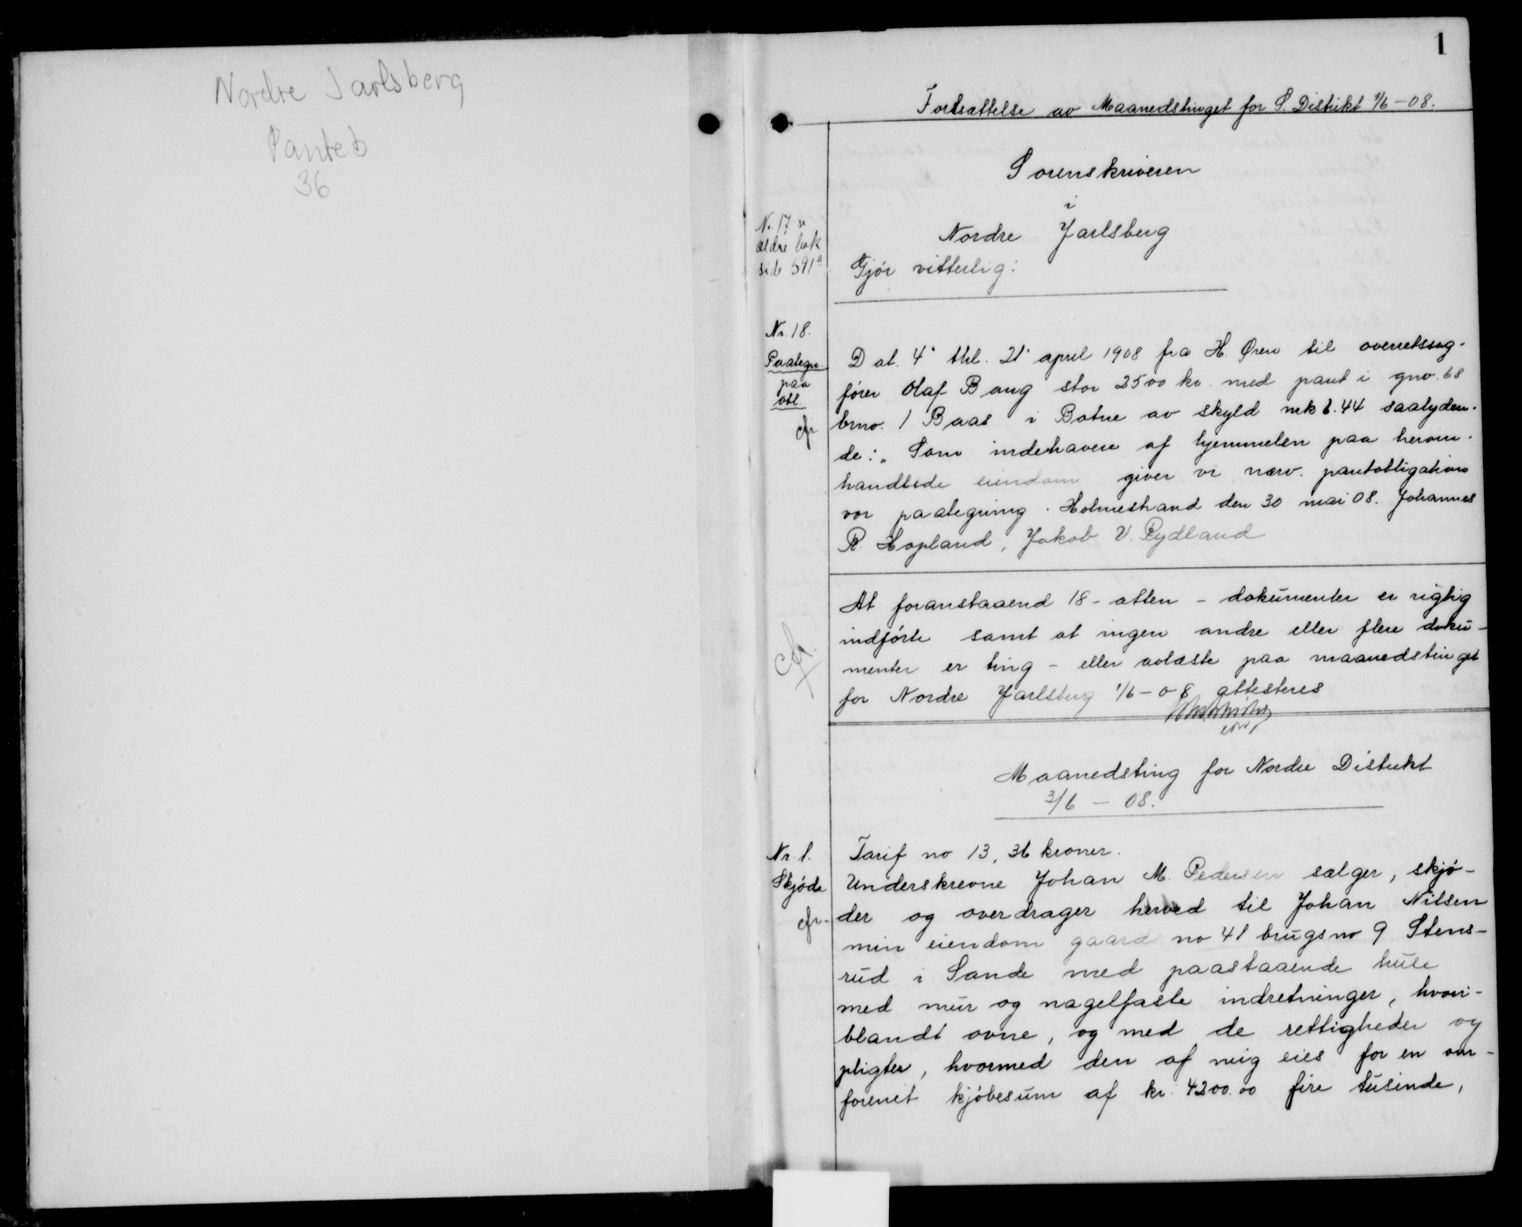 Nordre Jarlsberg
Panteb
36
1
Fortsættelse av Maanedstinget for S. Distrikt 1/6-08.
Sorenskriveren
i
Nordre Jarlsberg
Gjør vitterlig:
No. 17 se
ældre bok
side 591a
Nr. 18.
Paategn.
paa
obl.
cfr
Dat. 4' thl. 21' april 1908 fra H. Øren til overretssag-
fører Olaf Bang stor 2500 kr. med pant i gno. 68
brno. 1 Baas i Botne av skyld mk 6.44 saalyden-
de: „Som indehavere af hjemmelen paa herom-
handlede eiendom giver vi nærv. pantobligation
vor paategning. Holmestrand den 30 mai 08. Johannes
R. Hopland, Jakob V. Rydland
At foranstaaend 18-atten - dokumenter er rigtig
indførte samt at ingen andre eller flere doku-
menter er ting- eller avlæste paa maanedstinget
for Nordre Jarlsberg 1/6-08 attesteres
cfr.
Maanedsting for Nordre Distrikt
3/6 - 08.
Nr 1.
Skjøde
cfr.
Tarif no 13, 36 kroner.
Underskrevne Johan M. Pedersen sælger, skjø-
der og overdrager herved til Johan Nilsen
min eiendom gaards no 41 brugsno 9 Stens-
rud i Sande med paastaaende huse
med mur og nagelfaste indretninger, hvori-
blandt ovne, og med de rettigheder og
pligter, hvormed den af mig eies for en om-
forenet kjøbesum af kr. 4200.00 fire tusinde,